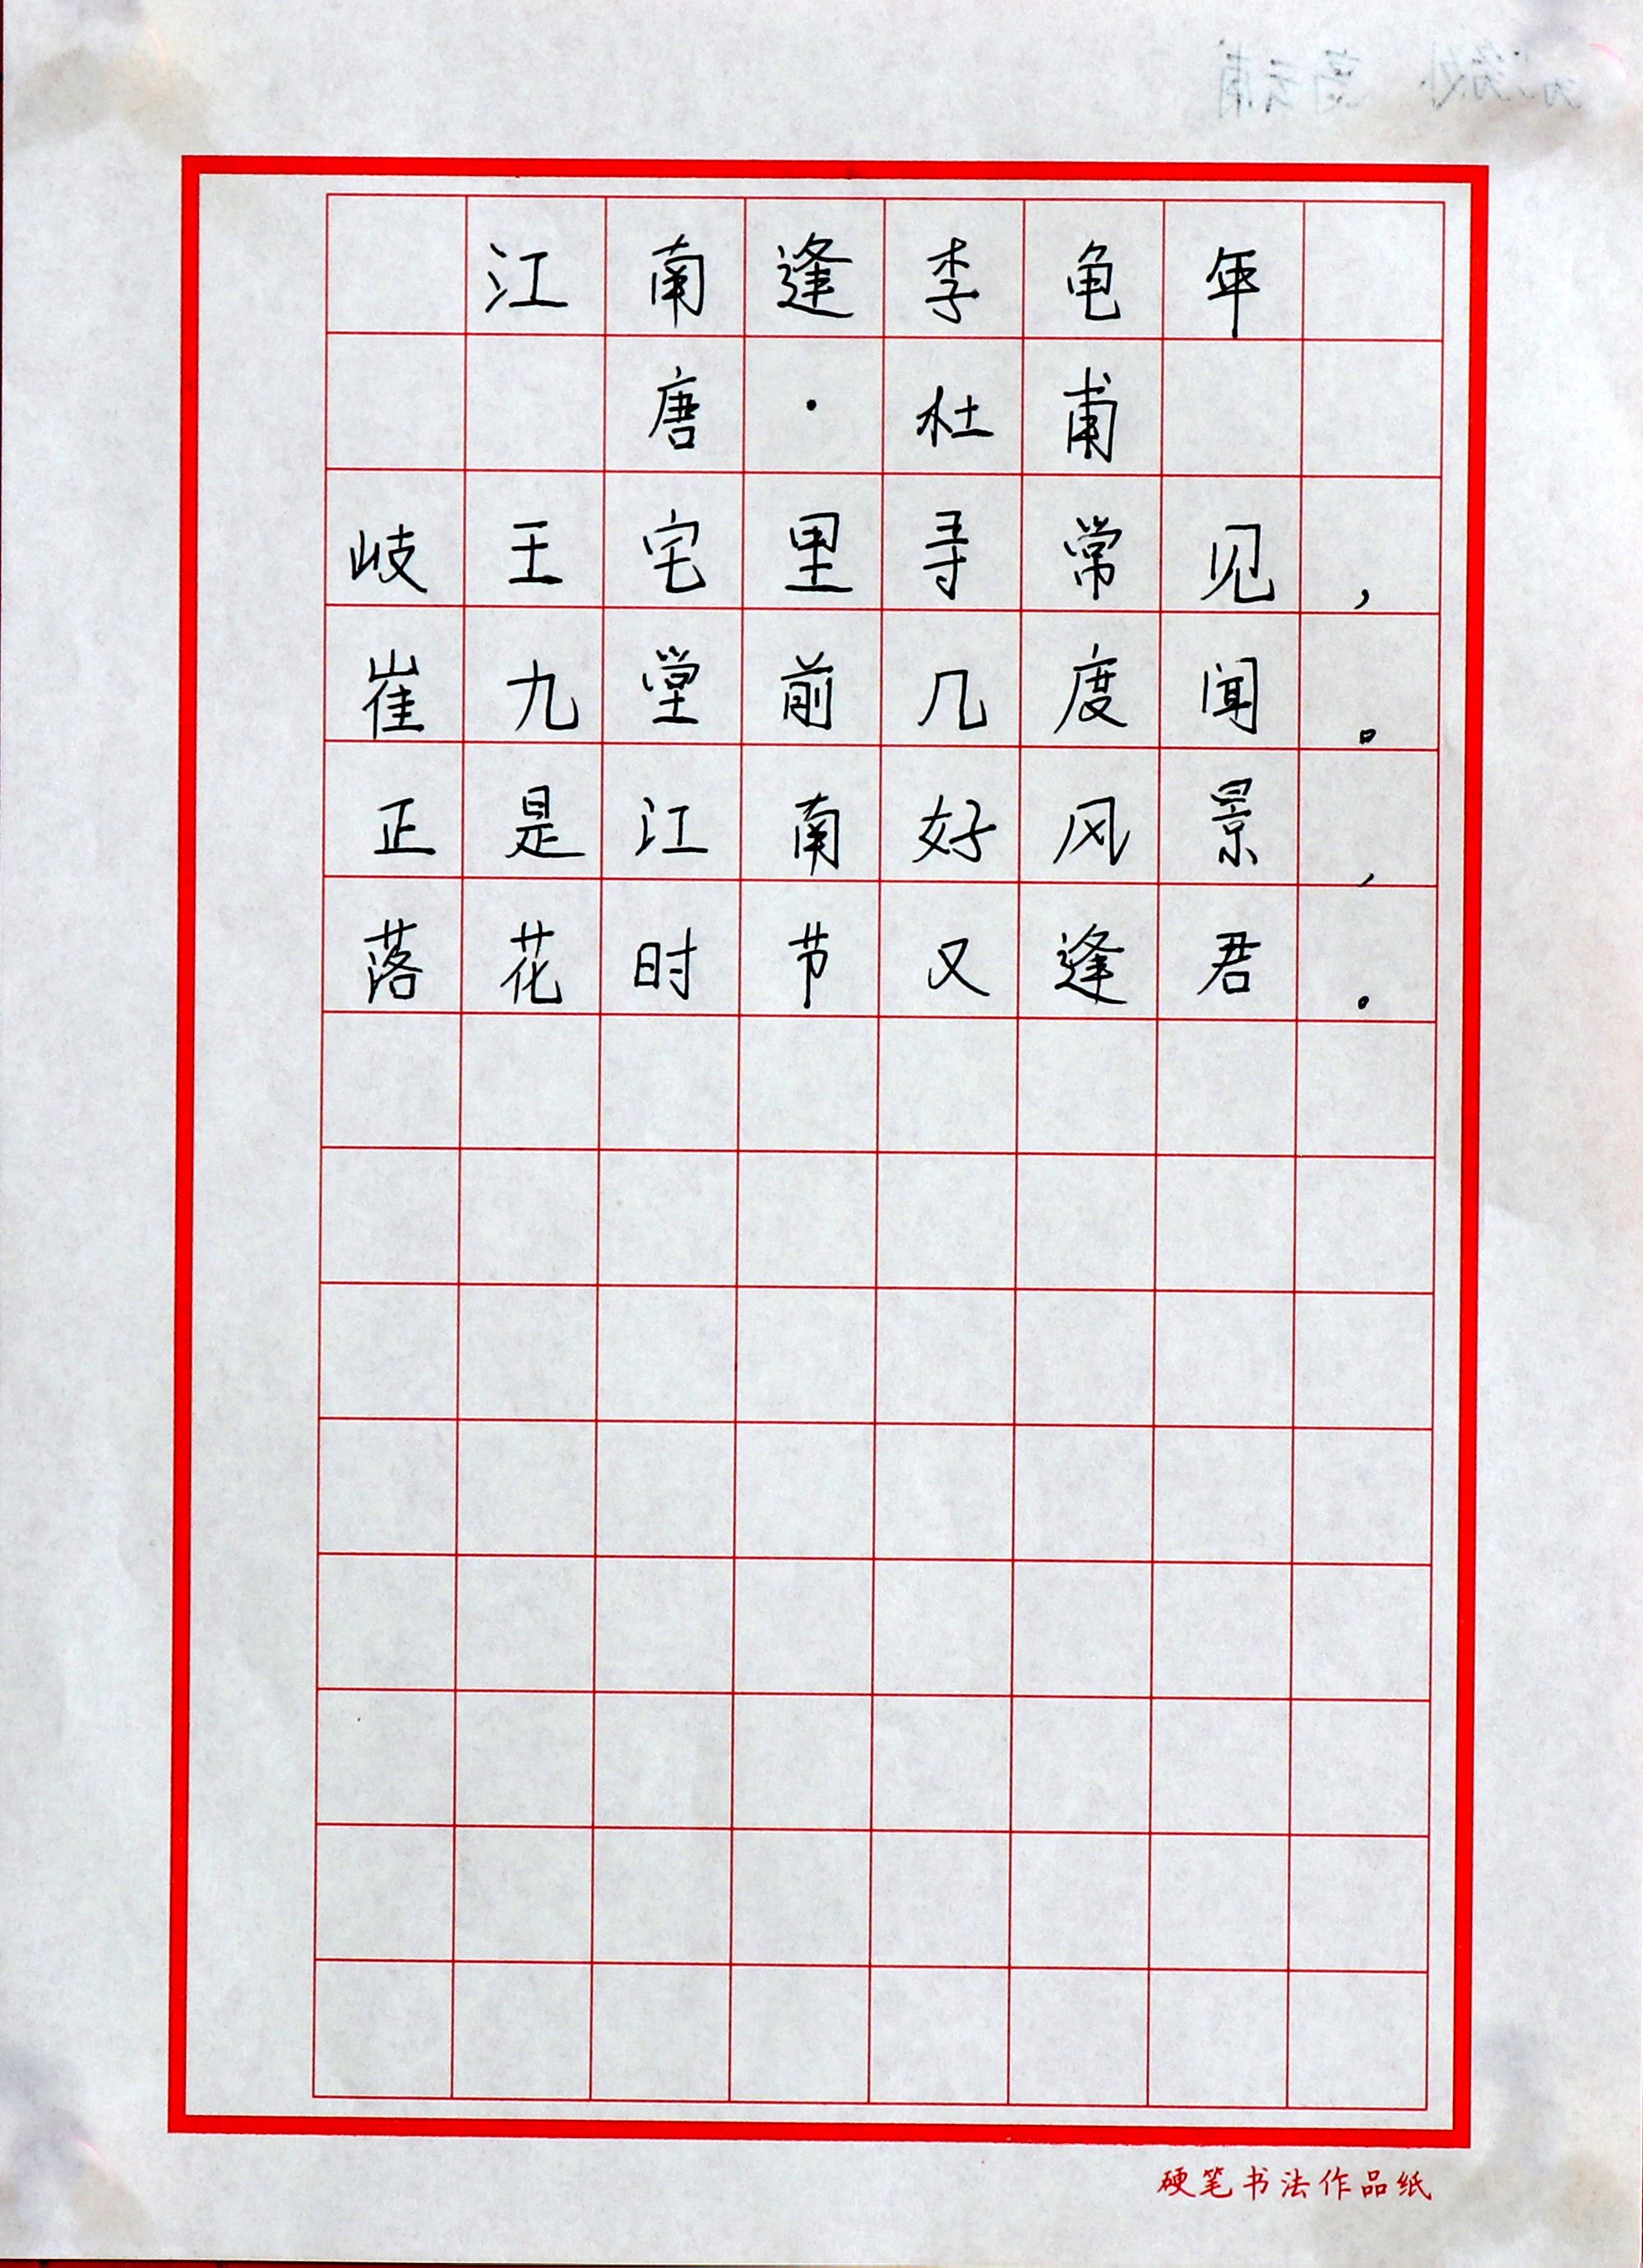 江南逢李龟年
唐·杜甫
岐王宅里寻常见，
崔九堂前几度闻。
正是江南好风景，
落花时节又逢君.
硬笔书法作品纸